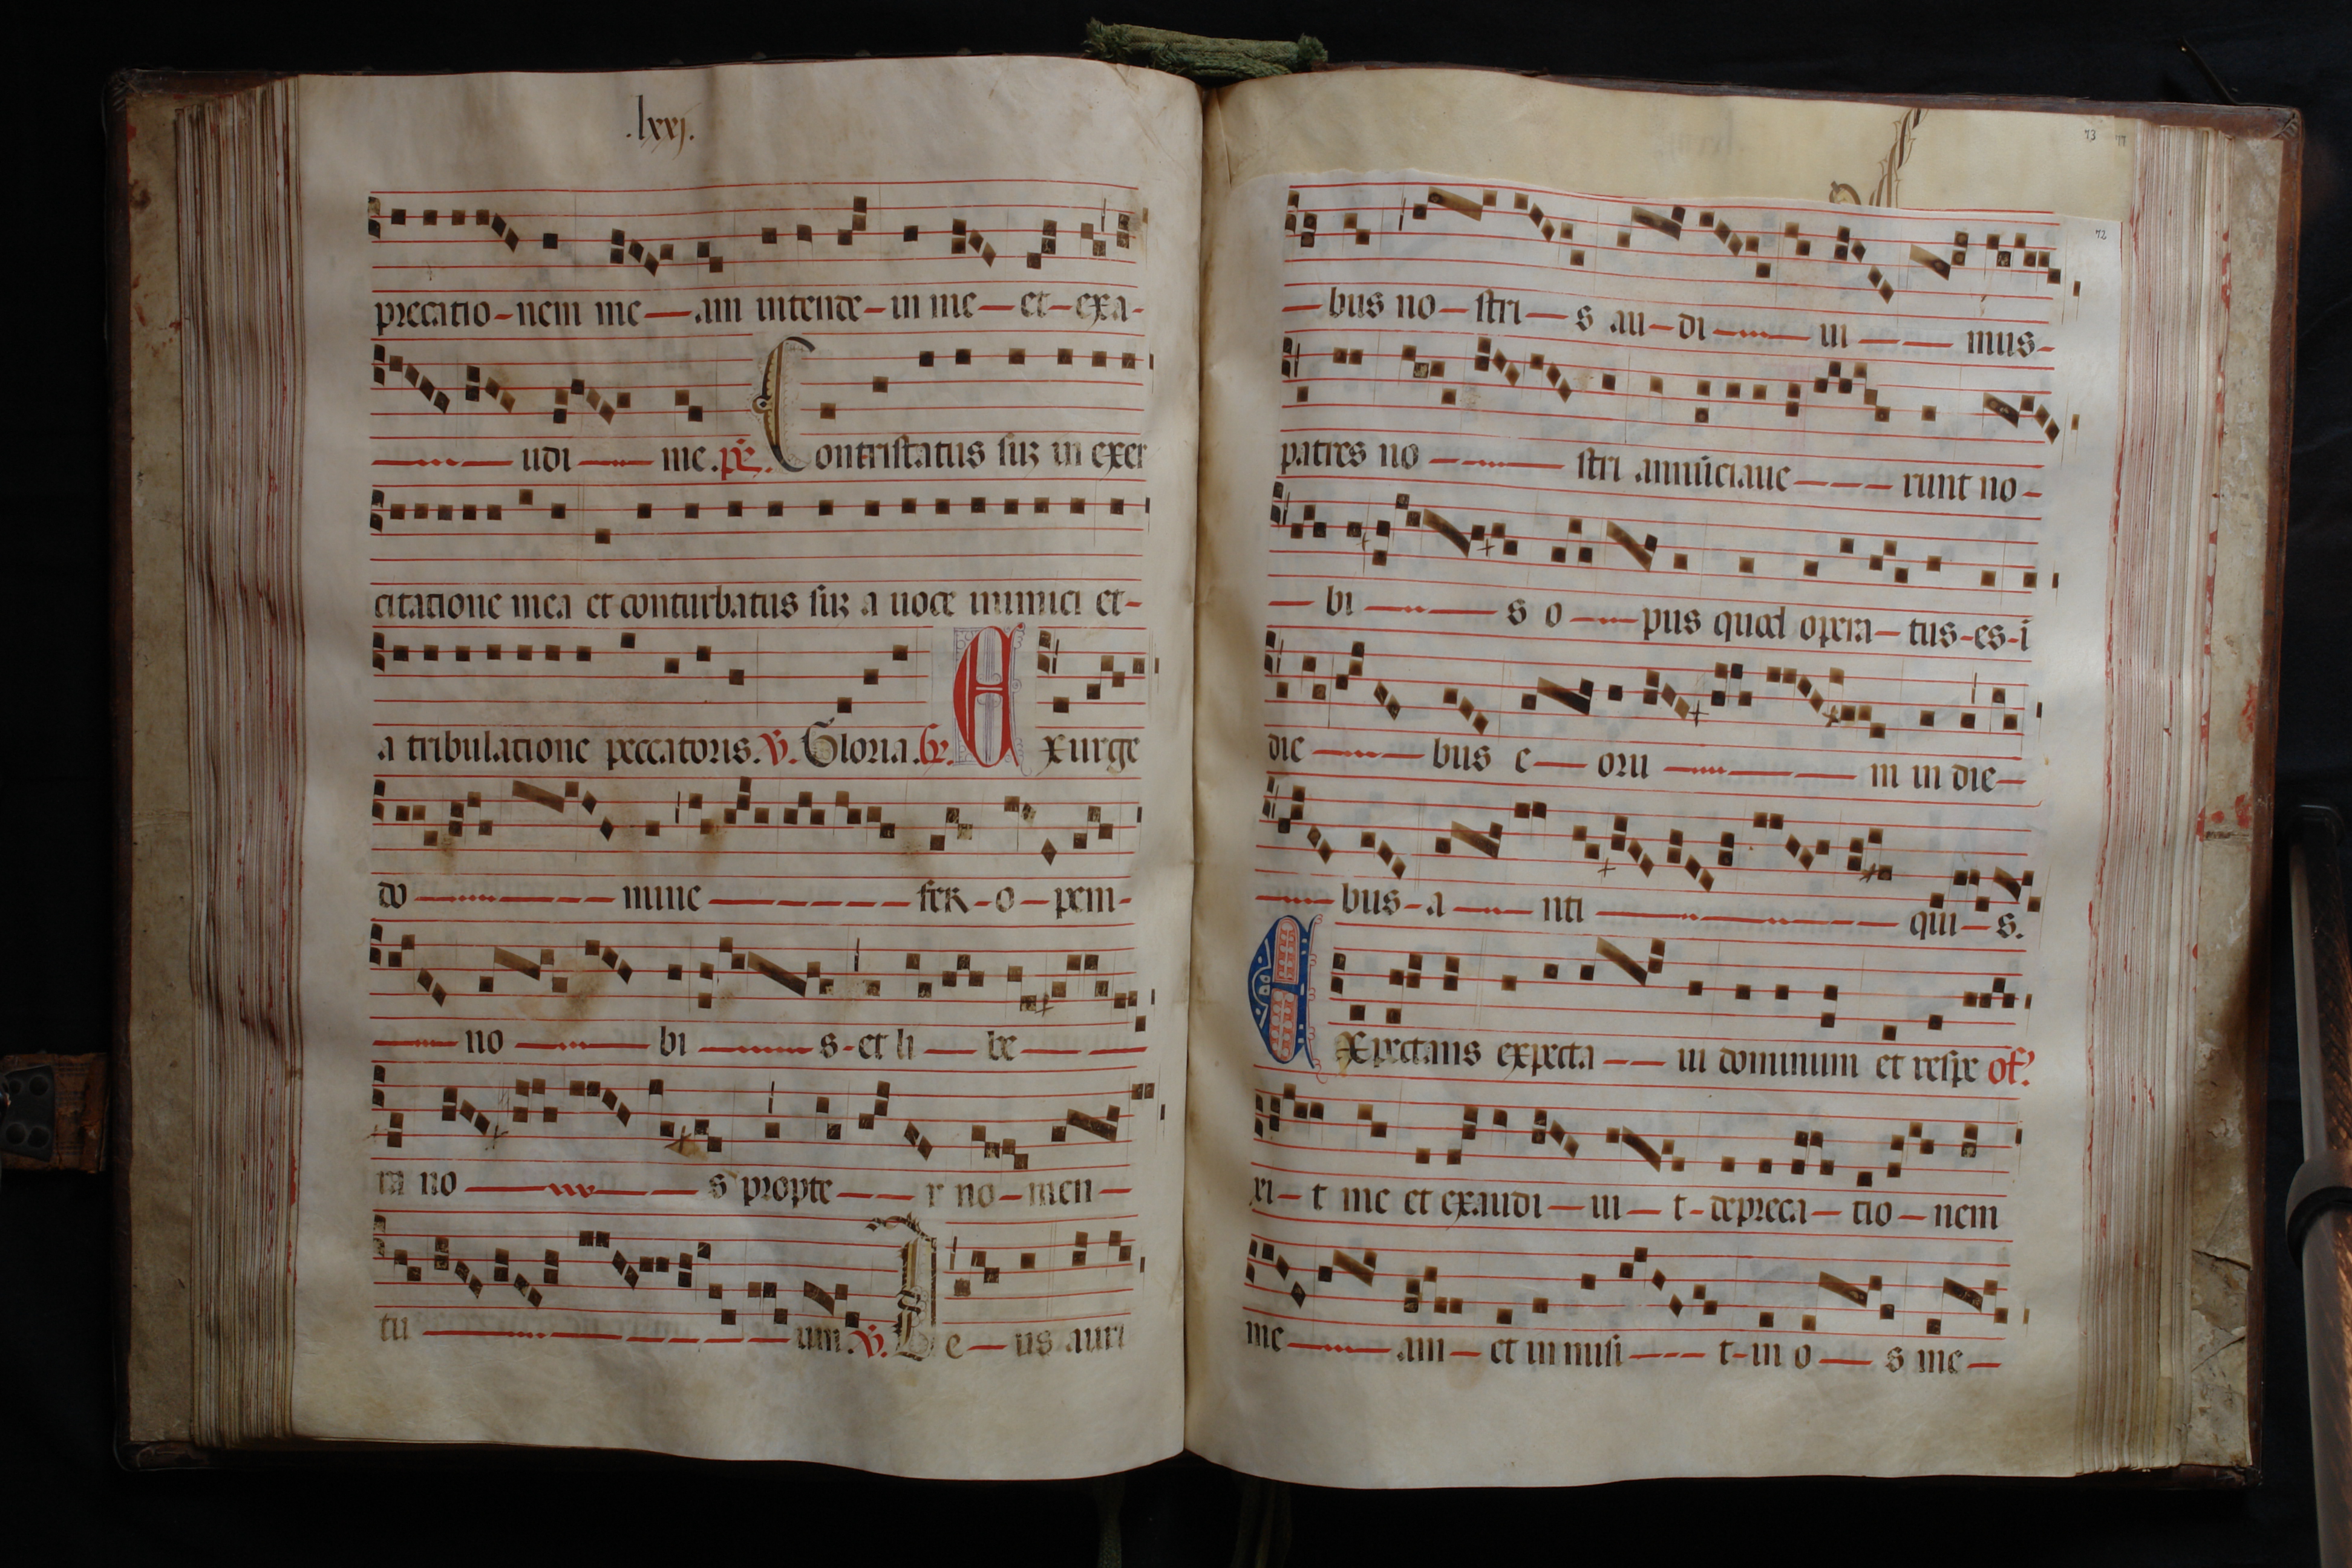 .lxxj.
precatio-nem me—am intende-in me—et-exa-
———udi——me. ps. Contristatus suz in exer
citatione mea et conturbatus suz a uoce inimici et-
a tribulatione peccatoris. V. Gloria. Gr. Exurge
do——————mine———————fer-o—pem-
——no———bi———s-et li—be———
ra no————s propte——r no—men—
tu————————um. V. De—us auri
73
72
—bus no—stri—s au—di———ui———mus-
patres no————stri annūciaue———runt no-
—bi———s o——pus quod opera—tus-es-i
die———bus e—oru————m in die—
——bus-a——nti————————qui—s.
Expectans expecta——ui dominum et respe of.
xi—t me et exaudi—ui—t-depreca—tio—nem
me———am—et inmisi———t-in o—s me—